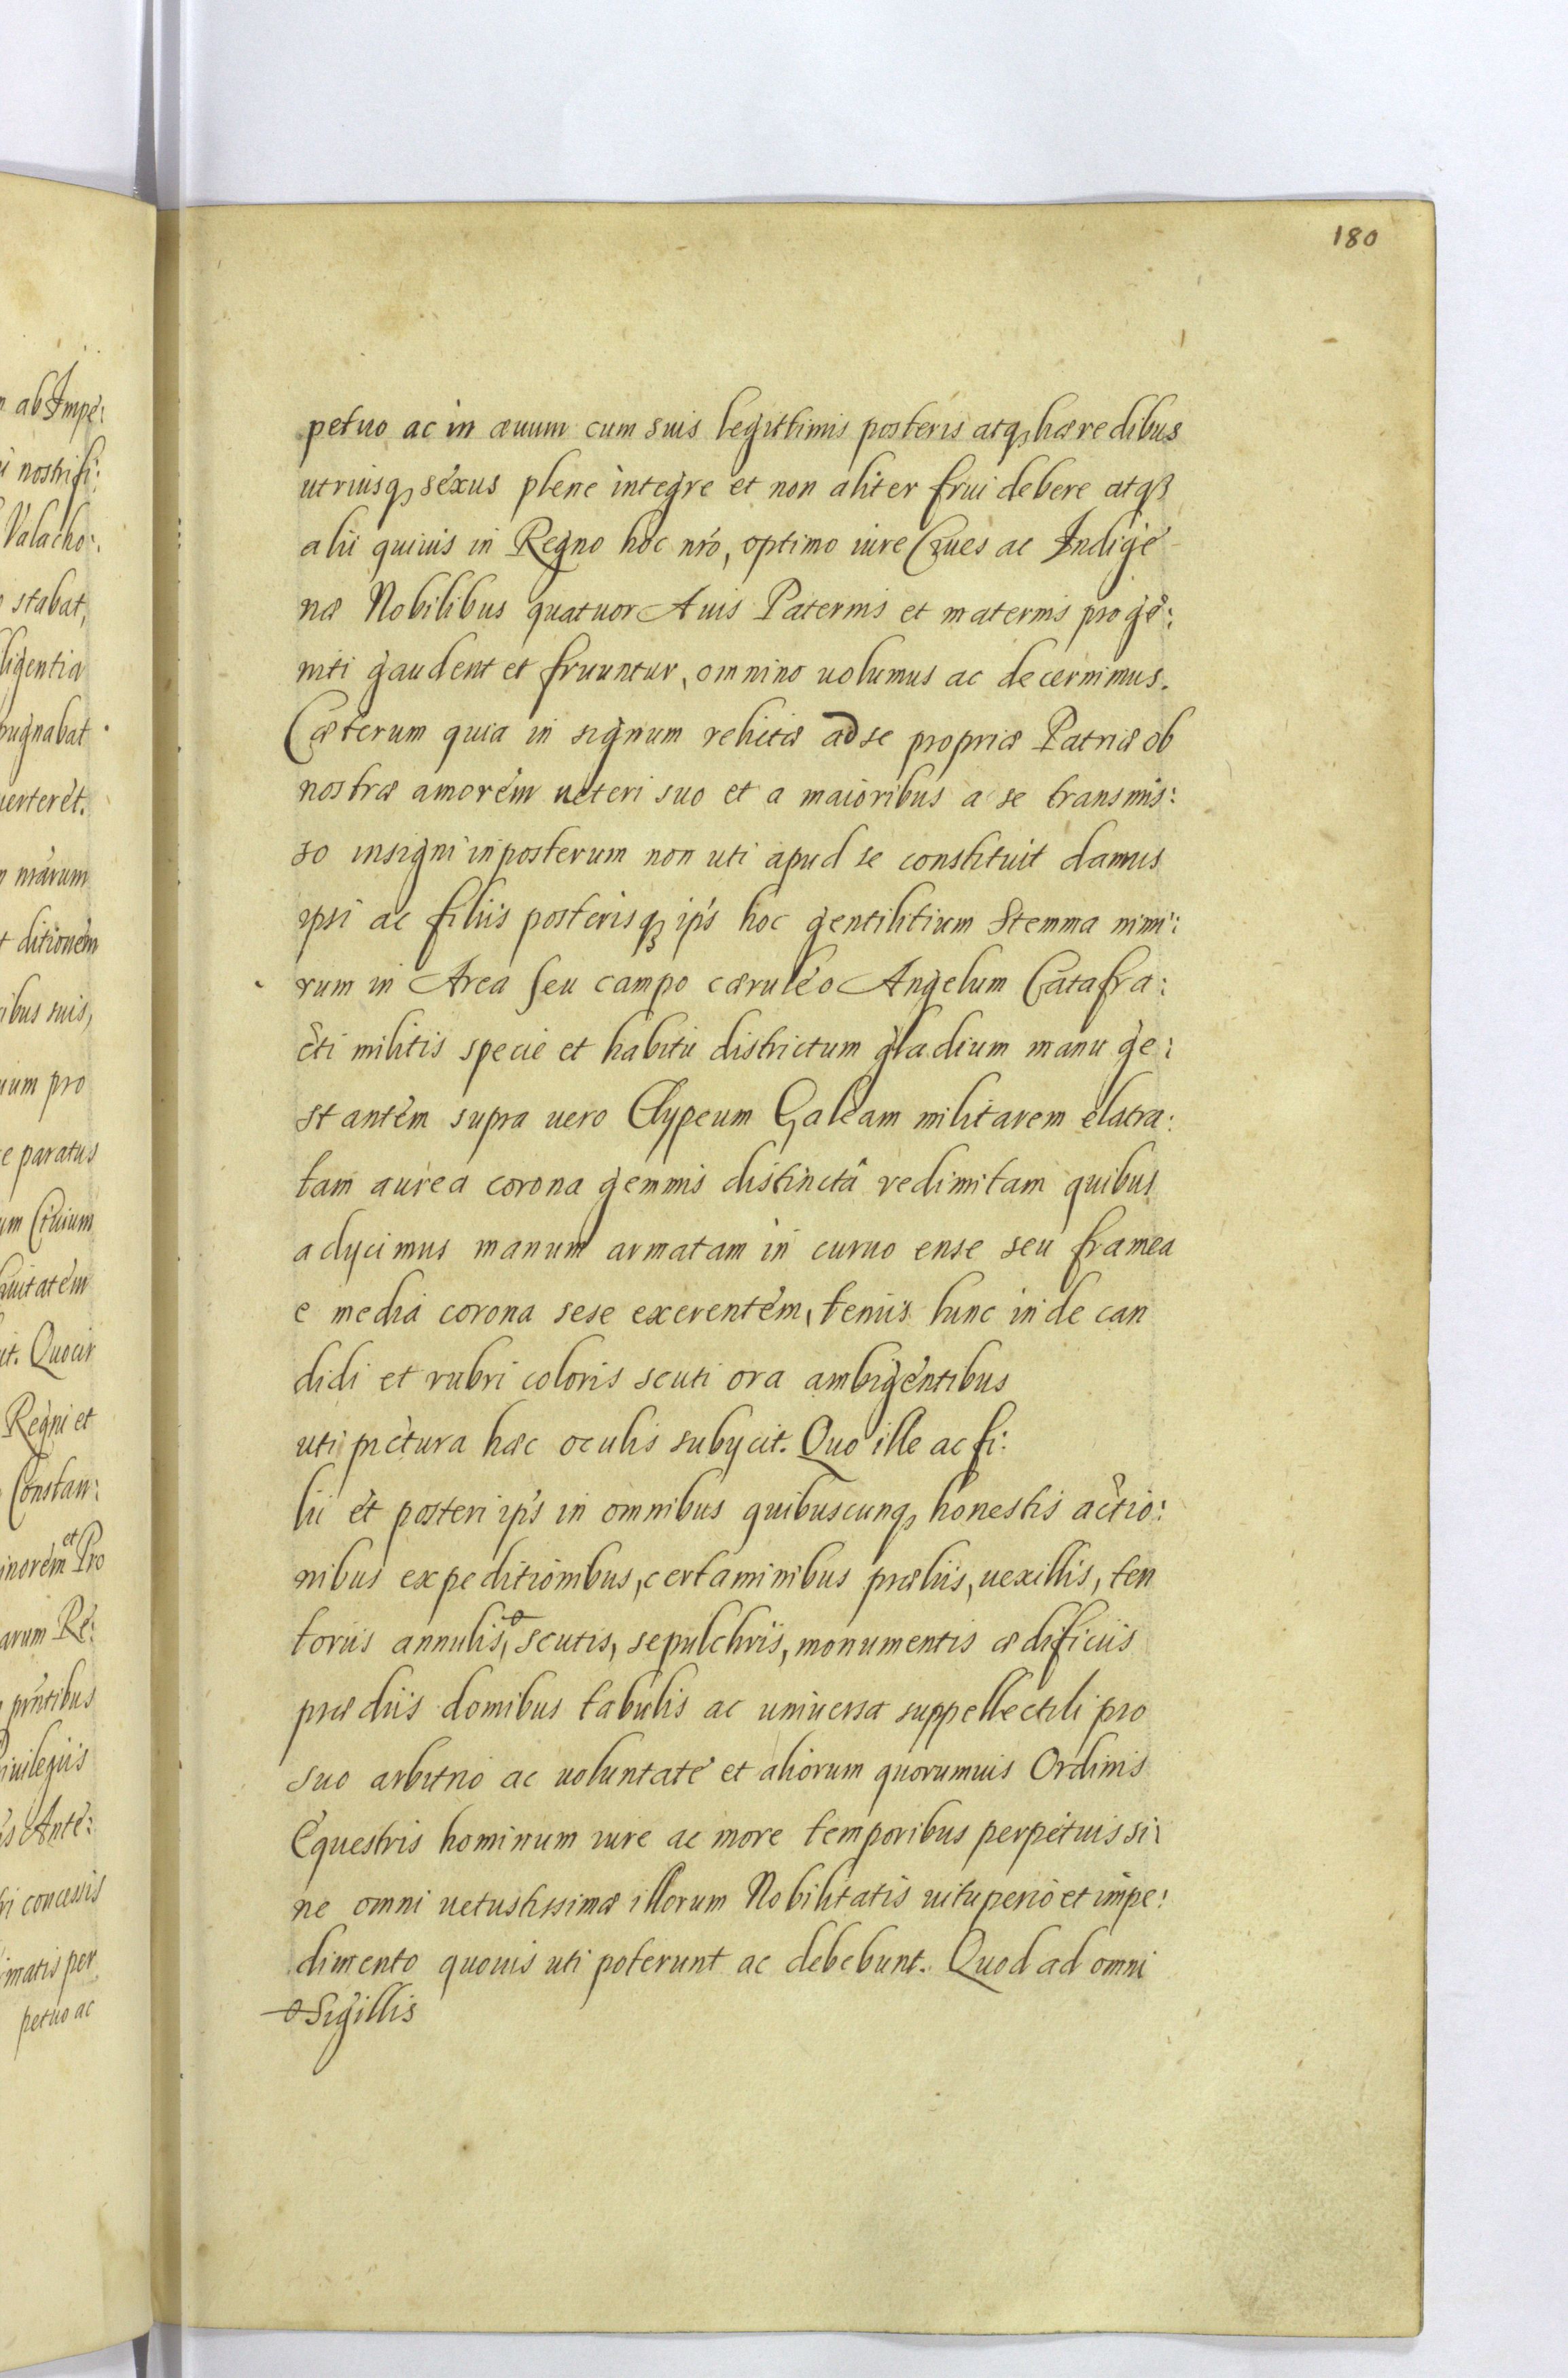 180
petuo ac in æuum cum suis legittimis posteris atqꝫ hæredibus
utriusqꝫ sexus plene integre et non aliter frui debere atqꝫ
alii quiuis in Regno hoc nr̃o, optimo iure Ciues ac Indige
næ Nobilibus quatuor Auis Paternis et maternis proge:
niti gaudent et fruuntur, omnino uolumus ac decernimus.
Cæterum quia in signum relictæ ad se propriæ Patriæ ob
nostræ amorem ueteri suo et a maioribus a se transmis:
so insigni in posterum non uti apud se constituit damus
ipsi ac filiis posterisqꝫ ip̃s hoc gentilitium Stemma nimi:
rum in Area seu campo cæruleo Angelum Catafra:
cti militis specie et habitu districtum gladium manu ge:
stantem supra uero Clypeum Galeam militarem clatra:
tam aurea corona gemmis distincta redimitam quibus
adijcimus manum armatam in curuo ense seu framea
e media corona sese exerentem, teniis hinc inde can
didi et rubri coloris scuti ora ambigentibus
uti pictura hæc oculis subijcit. Quo ille ac fi:
lii et posteri ip̃s in omnibus quibuscunqꝫ honestis actio:
nibus expeditionibus, certaminibus præliis, uexillis, ten
toriis annulis, scutis, sepulchris, monumentis ædificiis
prædiis domibus tabulis ac uniuersa suppellectili pro
suo arbitrio ac uoluntate et aliorum quorumuis Ordinis
Equestris hominum iure ac more temporibus perpetuis si:
ne omni uetustissimæ illorum Nobilitatis uituperio et impe:
dimento quouis uti poterunt ac debebunt. Quod ad omni
Sigillis
ab Impe:
nostri fi:
Valacho:
stabat,
ligentia
pugnabat
uerteret.
nr̃arum
ditionem
ibus suis,
um pro
e paratus
um Ciuium
uitatem
it. Quocir
Regni et
Constan:
inorem et Pro
arum Re:
pr̃ntibus
iuilegiis
Ante:
ri concessis
imatis per
petuo ac